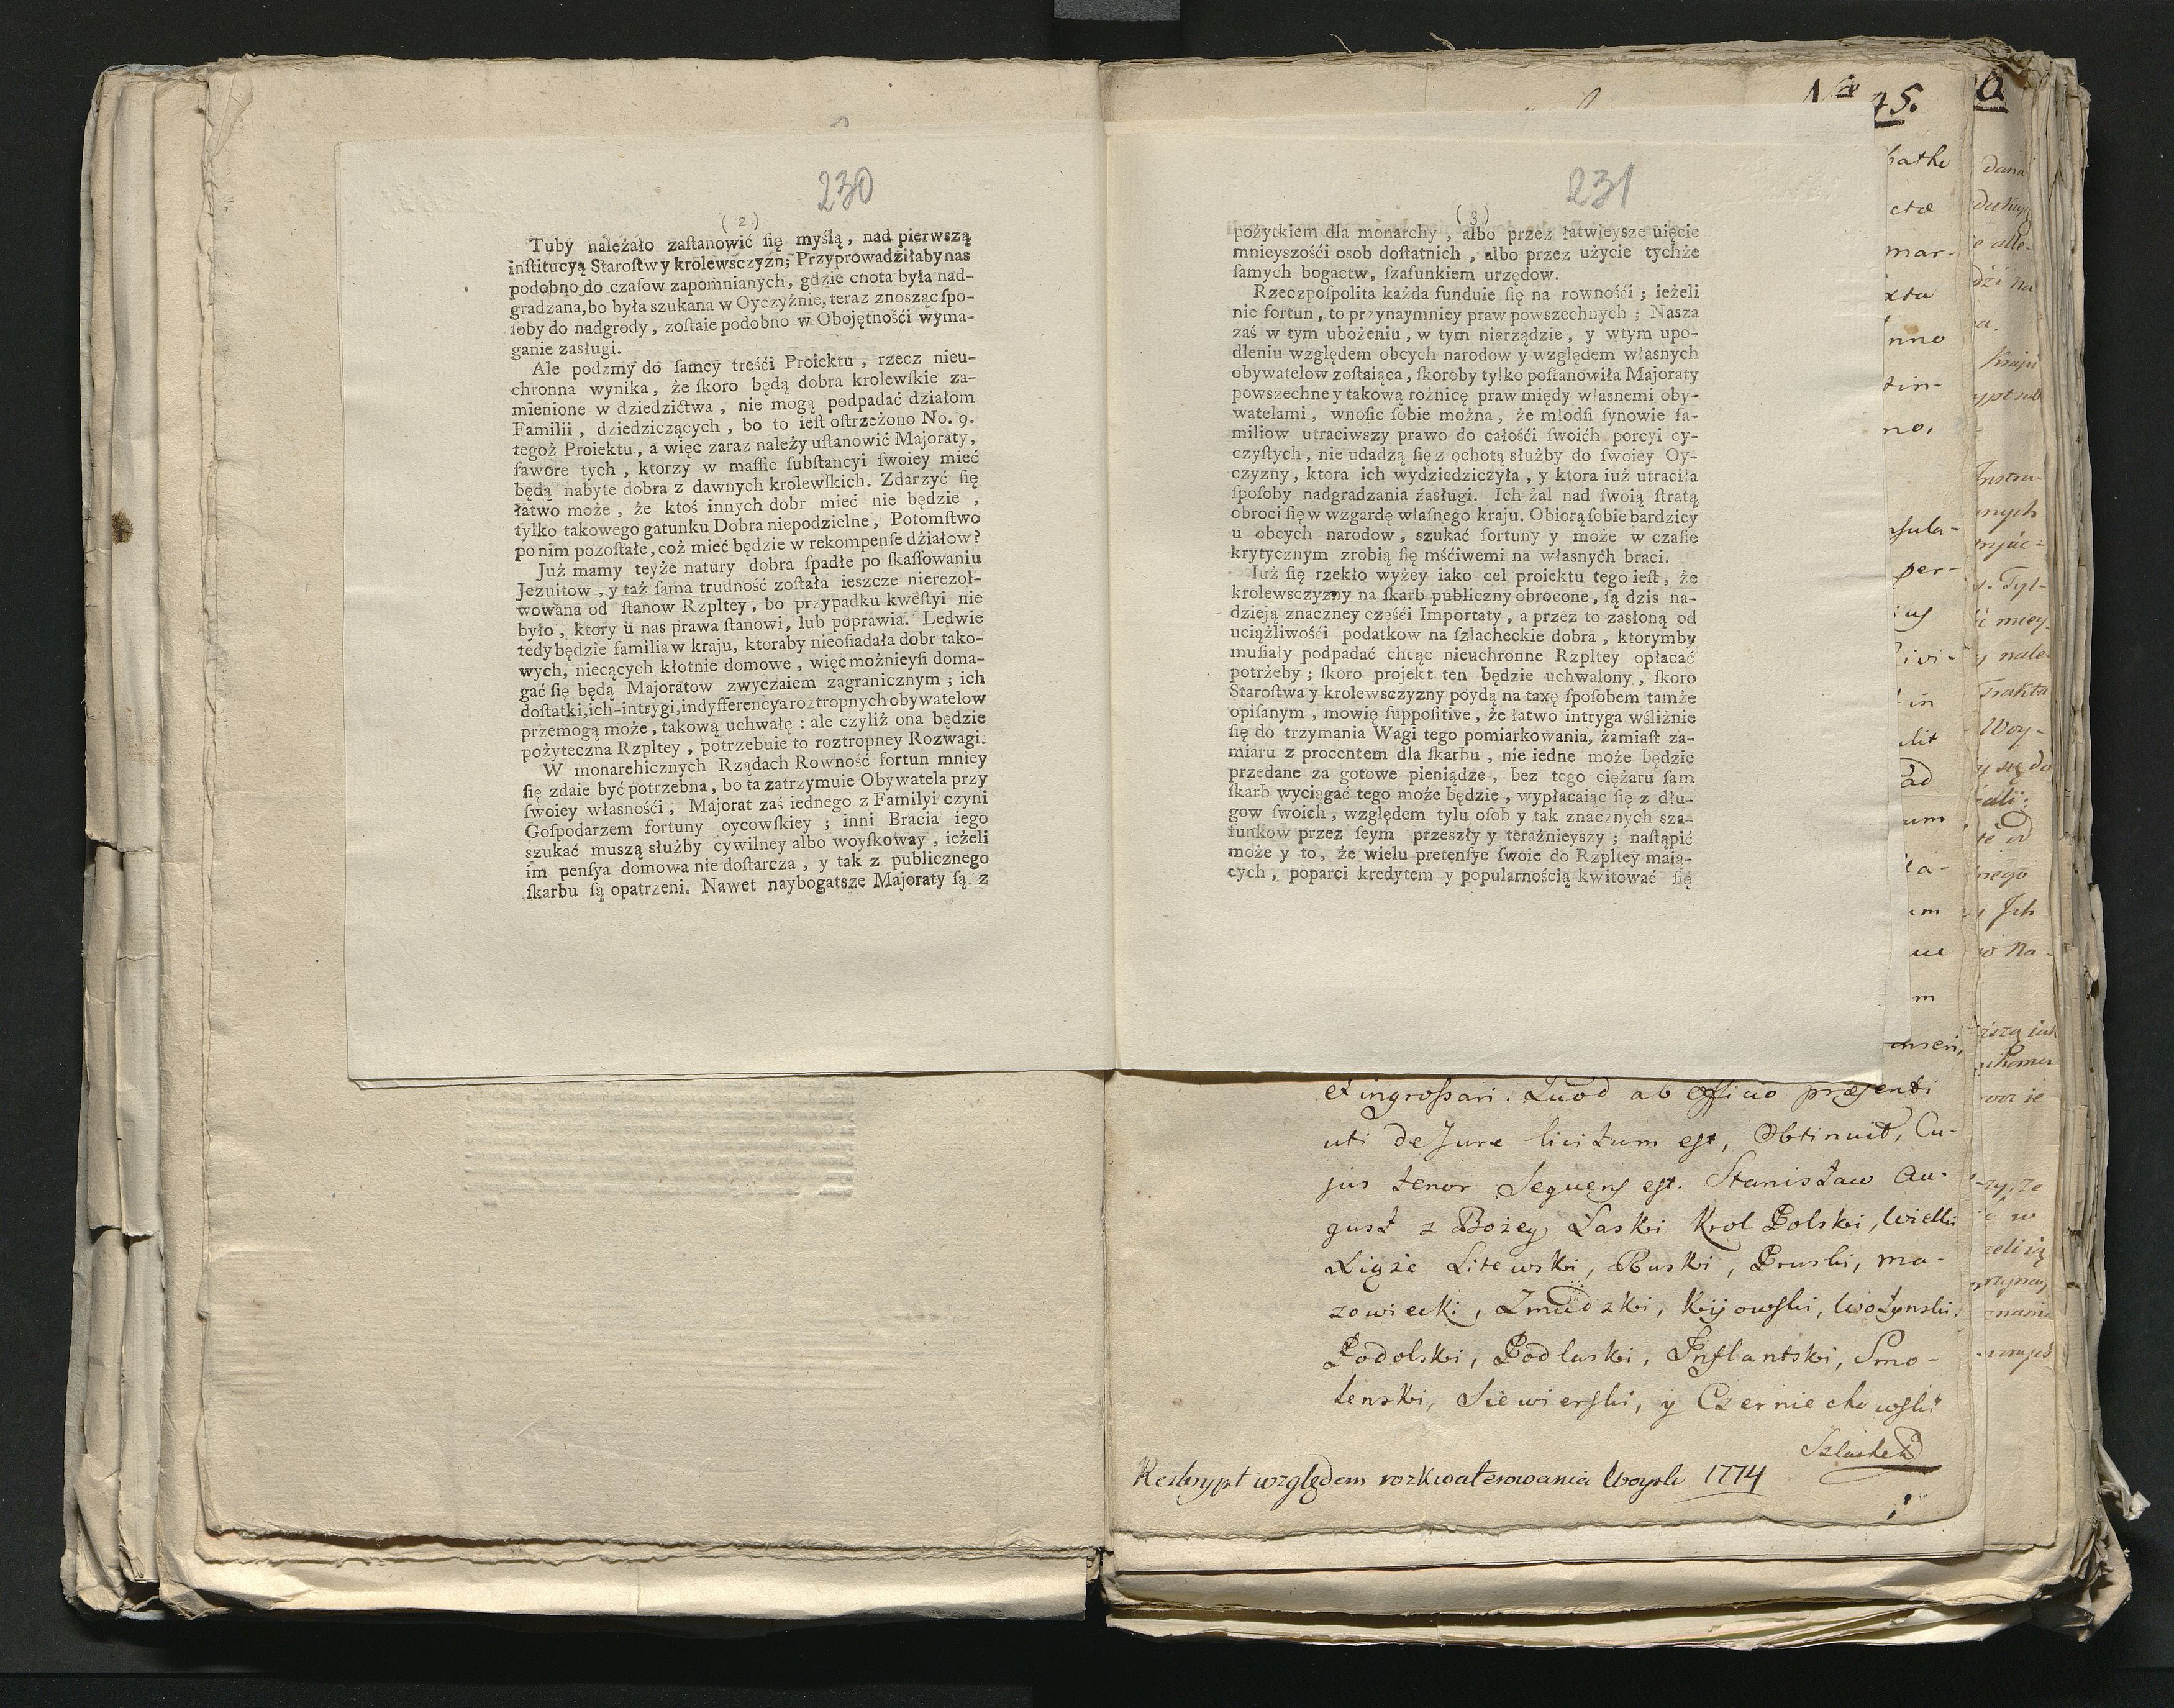 230
( 2 )
Tuby należało zaſtanowić ſię myślą, nad pierwszą
inſtitucyą Staroſtw y królewsczyzn; Przyprowadźiłaby nas
podobno do czaſow zapomnianych, gdzie cnota była nad-
gradzana, bo była szukana w Oyczyźnie, teraz znosząc ſpo-
ſoby do nadgrody, zoſtaie podobno w Obojętnośći wyma-
ganie zasługi.
Ale podzmy do ſamey treśći Proiektu, rzecz nieu-
chronna wynika, że ſkoro będą dobra krolewſkie za-
mienione w dziedzictwa, nie mogą podpadać działom
Familii, dziedziczących, bo to ieſt oſtrzeżono No. 9.
tegoż Proiektu, a więc zaraz należy uſtanowić Majoraty,
fawore tych, ktorzy w maſſie ſubſtancyi ſwoiey mieć
będą nabyte dobra z dawnych krolewſkich. Zdarzyć ſię
łatwo może, że ktoś innych dobr mieć nie będzie,
tylko takowego gatunku Dobra niepodzielne, Potomſtwo
po nim pozoſtałe, coż mieć będzie w rekompenſe dźiałow?
Już mamy teyże natury dobra ſpadłe po ſkaſſowaniu
Jezuitow, y taż ſama trudność zoſtała ieszcze nierezol-
wowana od ſtanow Rzpltey, bo przypadku kweſtyi nie
było, ktory u nas prawa ſtanowi, lub poprawia. Ledwie
tedy będzie familia w kraju, ktoraby nieoſiadała dobr tako-
wych, niecących kłotnie domowe, więc możnieyſi doma-
gać ſię będą Majoratow zwyczaiem zagranicznym; ich
doſtatki, ich-intrygi, indyfferencya roztropnych obywatelow
przemogą może, takową uchwałę: ale czyliż ona będzie
pożyteczna Rzpltey, potrzebuie to roztropney Rozwagi.
W monarehicznych Rządach Rowność fortun mniey
ſię zdaie być potrzebna, bo ta zatrzymuie Obywatela przy
ſwoiey własnośći, Majorat zaś iednego z Familyi czyni
Goſpodarzem fortuny oycowſkiey; inni Bracia iego
szukać muszą służby cywilney albo woyſkoway, ieżeli
im penſya domowa nie doſtarcza, y tak z publicznego
ſkarbu ſą opatrzeni. Nawet naybogatsze Majoraty ſą z
Nro 45.
231
( 3 )
pożytkiem dla monarchy, albo przez łatwieysze uięcie
mnieyszośći osob doſtatnich, albo przez użycie tychże
ſamych bogactw, ſzafunkiem urzędow.
Rzeczpoſpolita każda funduie ſię na rownośći; ieżeli
nie fortun, to przynaymniey praw powszechnych; Nasza
zaś w tym ubożeniu, w tym nierządzie, y wtym upo-
dleniu względem obcych narodow y względem własnych
obywatelow zoſtaiąca, ſkoroby tylko poſtanowiła Majoraty
powszechne y takową rożnicę praw między własnemi oby-
watelami, wnoſic ſobie można, że młodſi ſynowie fa-
miliow utraciwszy prawo do całośći ſwoich porcyi oy-
czyſtych, nie udadzą ſię z ochotą służby do ſwoiey Oy-
czyzny, ktora ich wydziedziczyła, y ktora iuż utraciła
ſpoſoby nadgradzania źasługi. Ich żal nad ſwoią ſtratą
obroci ſię w wzgardę właſnego kraju. Obiorą ſobie bardziey
u obcych narodow, szukać fortuny y może w czaſie
krytycznym zrobią ſię mśćiwemi na własnyćh braci.
Iuż ſię rzekło wyżey iako cel proiektu tego ieſt, że
krolewsczyzny na ſkarb publiczny obrocone, ſą dzis na-
dzieją znaczney częśći Importaty, a przez to zasłoną od
uciążliwośći podatkow na ſzlacheckie dobra, ktorymby
muſiały podpadać chcąc nieuchronne Rzpltey opłacać
potrżeby; ſkoro projekt ten będzie uchwalony, ſkoro
Staroſtwa y krolewsczyzny poydą na taxę ſpoſobem tamże
opiſanym, mowię ſuppoſitive, że łatwo intryga wśliżnie
ſię do trzymania Wagi tego pomiarkowania, żamiaſt za-
miaru z procentem dla ſkarbu, nie iedne może będzie
przedane za gotowe pieniądze, bez tego ciężaru ſam
ſkarb wyciągać tego może będzie, wypłacaiąc ſię z dłu-
gow ſwoich, względem tylu oſob y tak znacznych sza-
funkow przez ſeym przeszły y teraźnieyszy; naſtąpić
może y to, że wielu pretenſye ſwoie do Rzpltey maią-
cych, poparci kredytem y popularnością kwitować ſię
et ingroſsari. Quod ab Officio præsenti
uti de Jure licitum est, Obtinuit, Cu-
jus tenor Sequens est. Stanisław Au-
gust z Bożey Łaski Krol Polski, Wielki
Xiąże Litewski, Ruski, Pruski, Ma-
zowiecki, Zmudzki, Kijowski, Wołynski,
Podolski, Podlaski, Inflantski, Smo-
lenski, Siewierski, y Czerniechowski
Reskrypt względem rozkwaterowania Woysk 1774